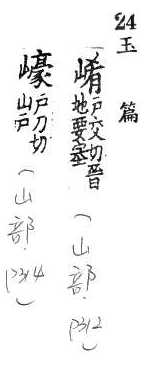 24
玉篇
崤戶交切晉地要塞(山部·P312
㠙戶刀切山戶(山部·P314)